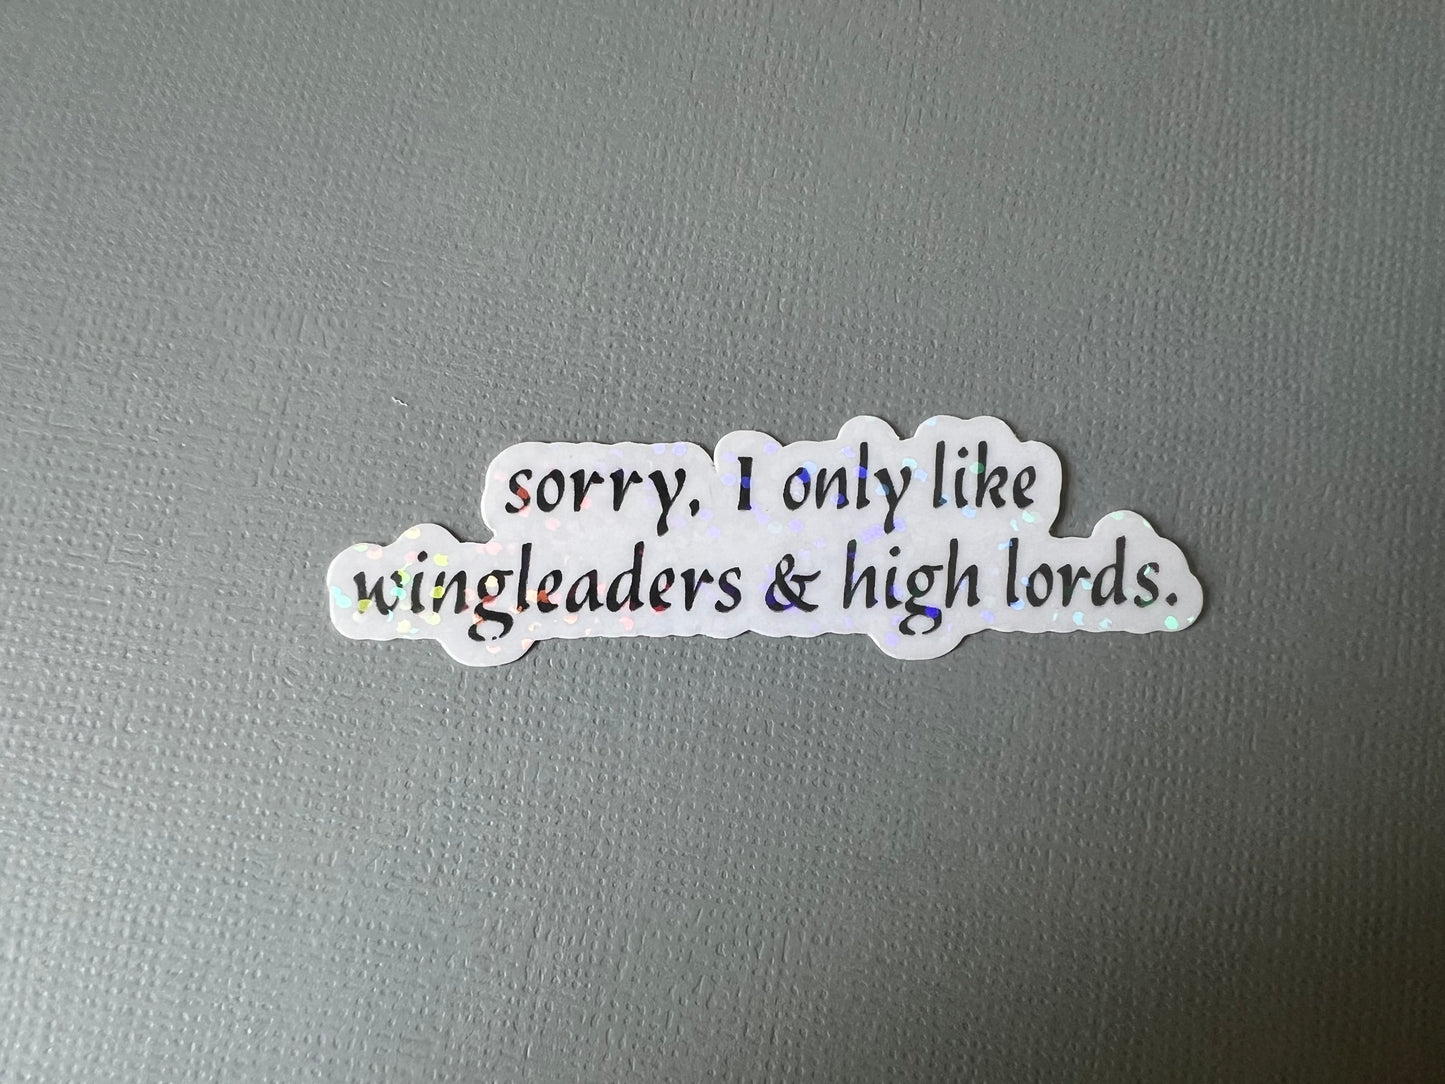 sorry, I only like
wingleaders & high lords.